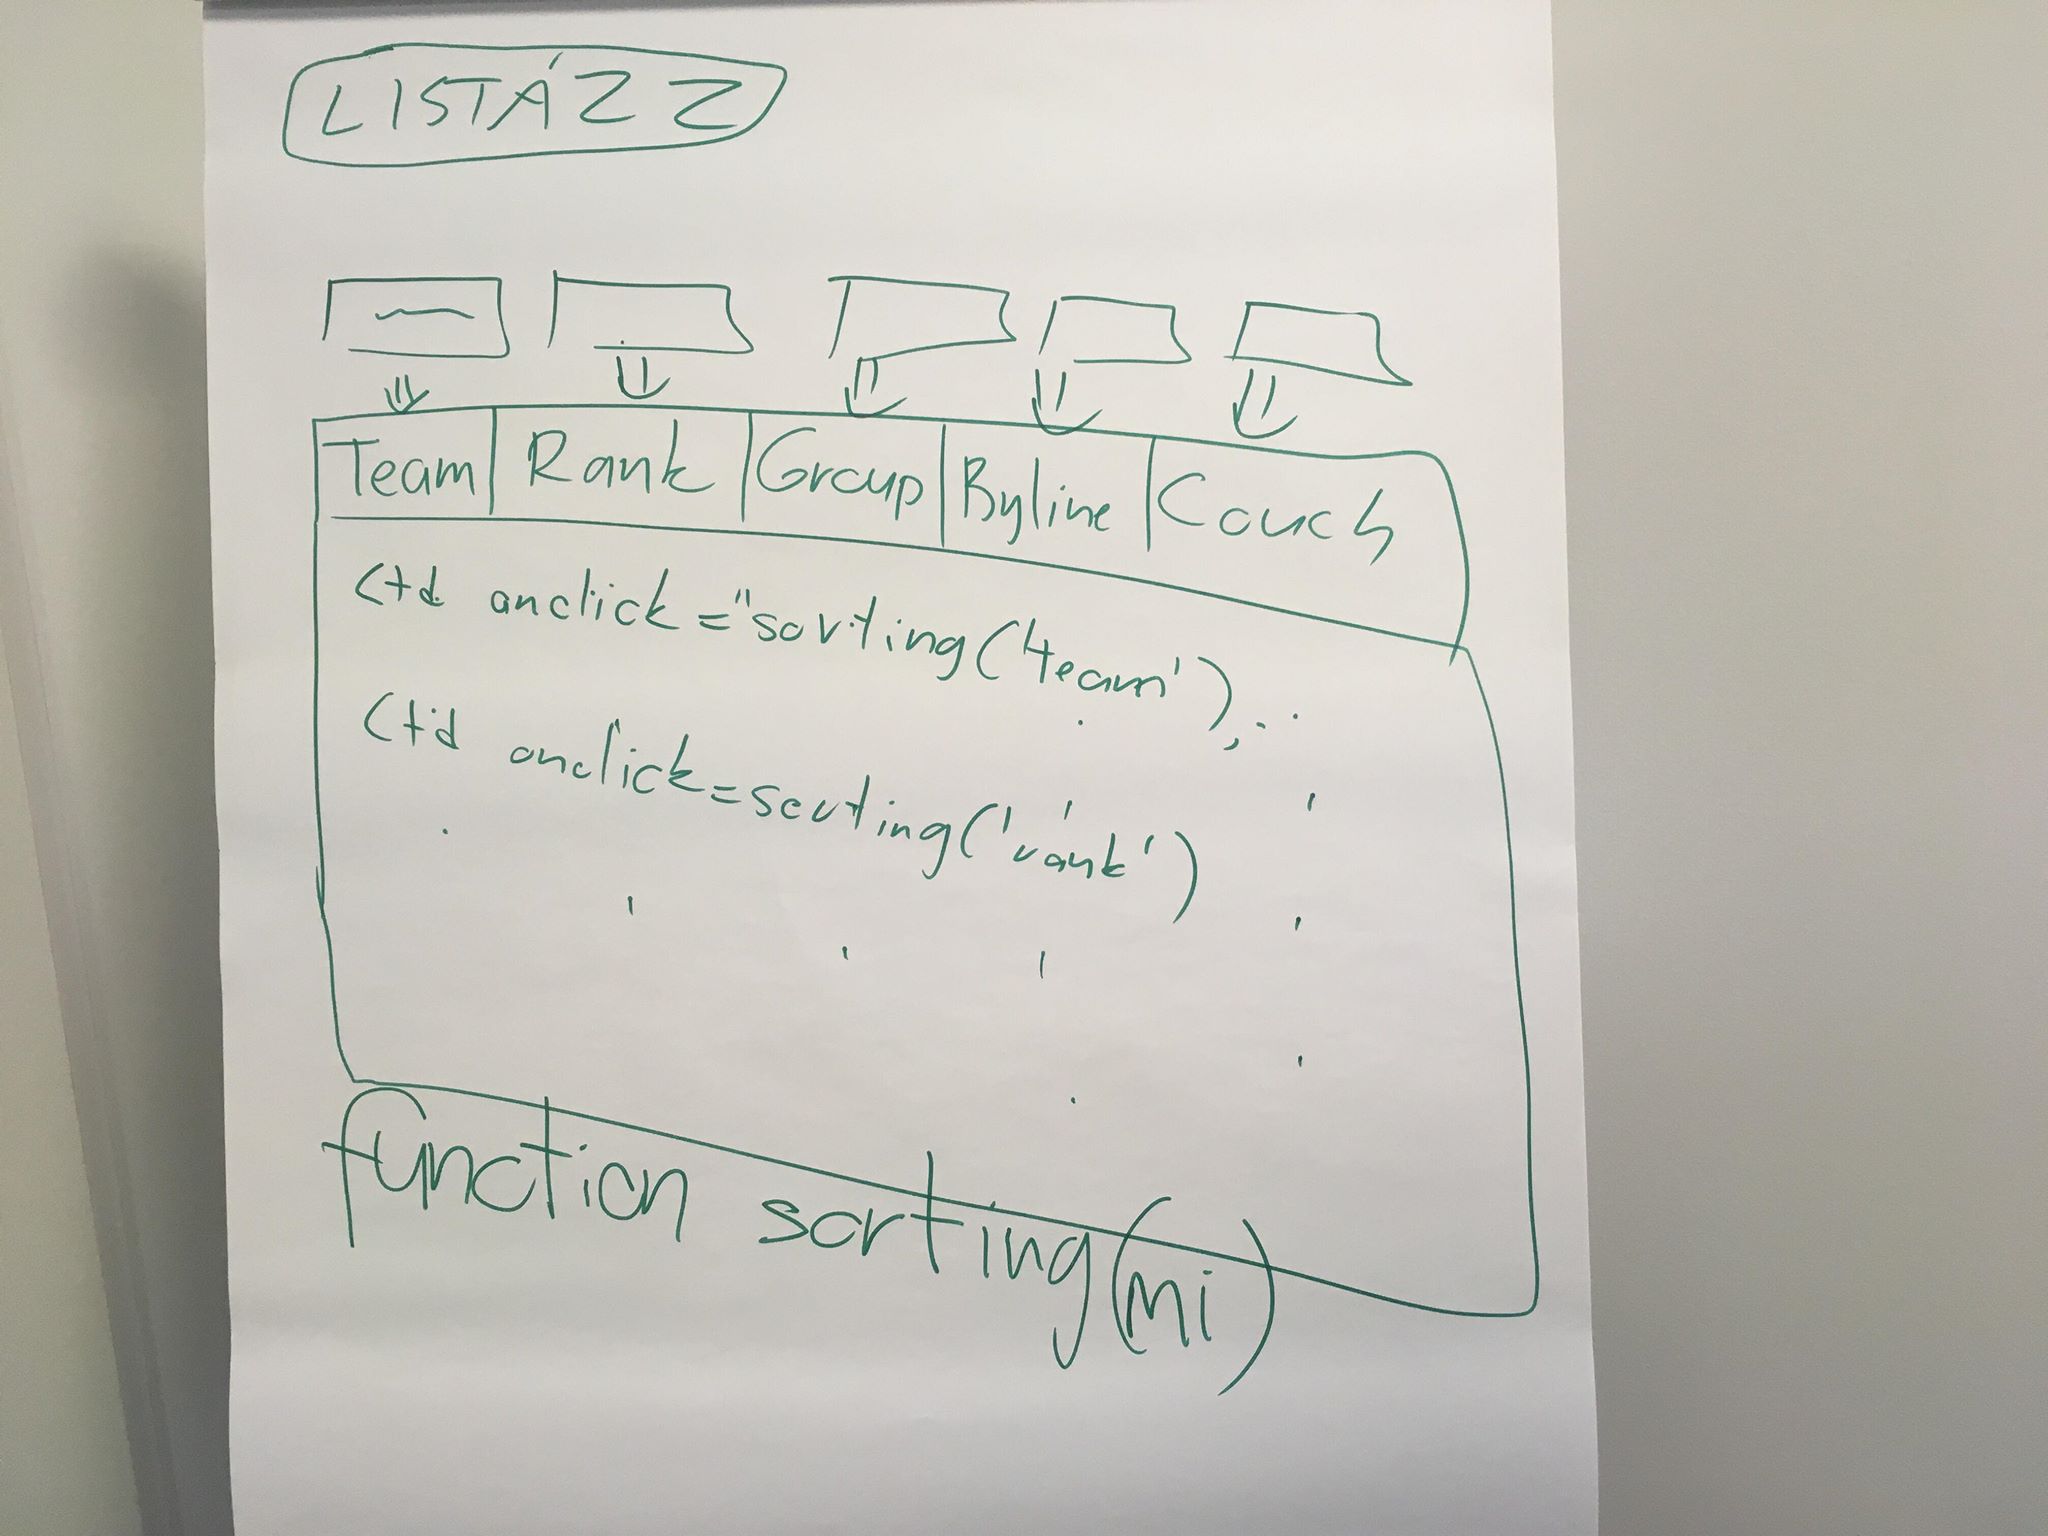 LISTÁZZ
Team Rank Group Byline Couch
<td onclick="sorting('team'),..
<td onclick=sorting('rank')
function sorting(mi)